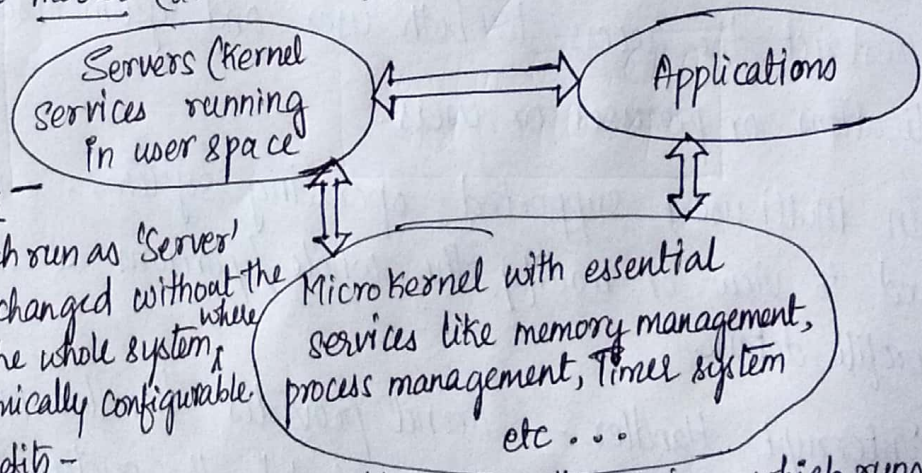 Servers (Kernel
services running
in user space
Applications
run as 'Server'
changed without the
whole system, where
configurable.
Microkernel with essential
services like memory management,
process management, Timer system
etc ...
which runs